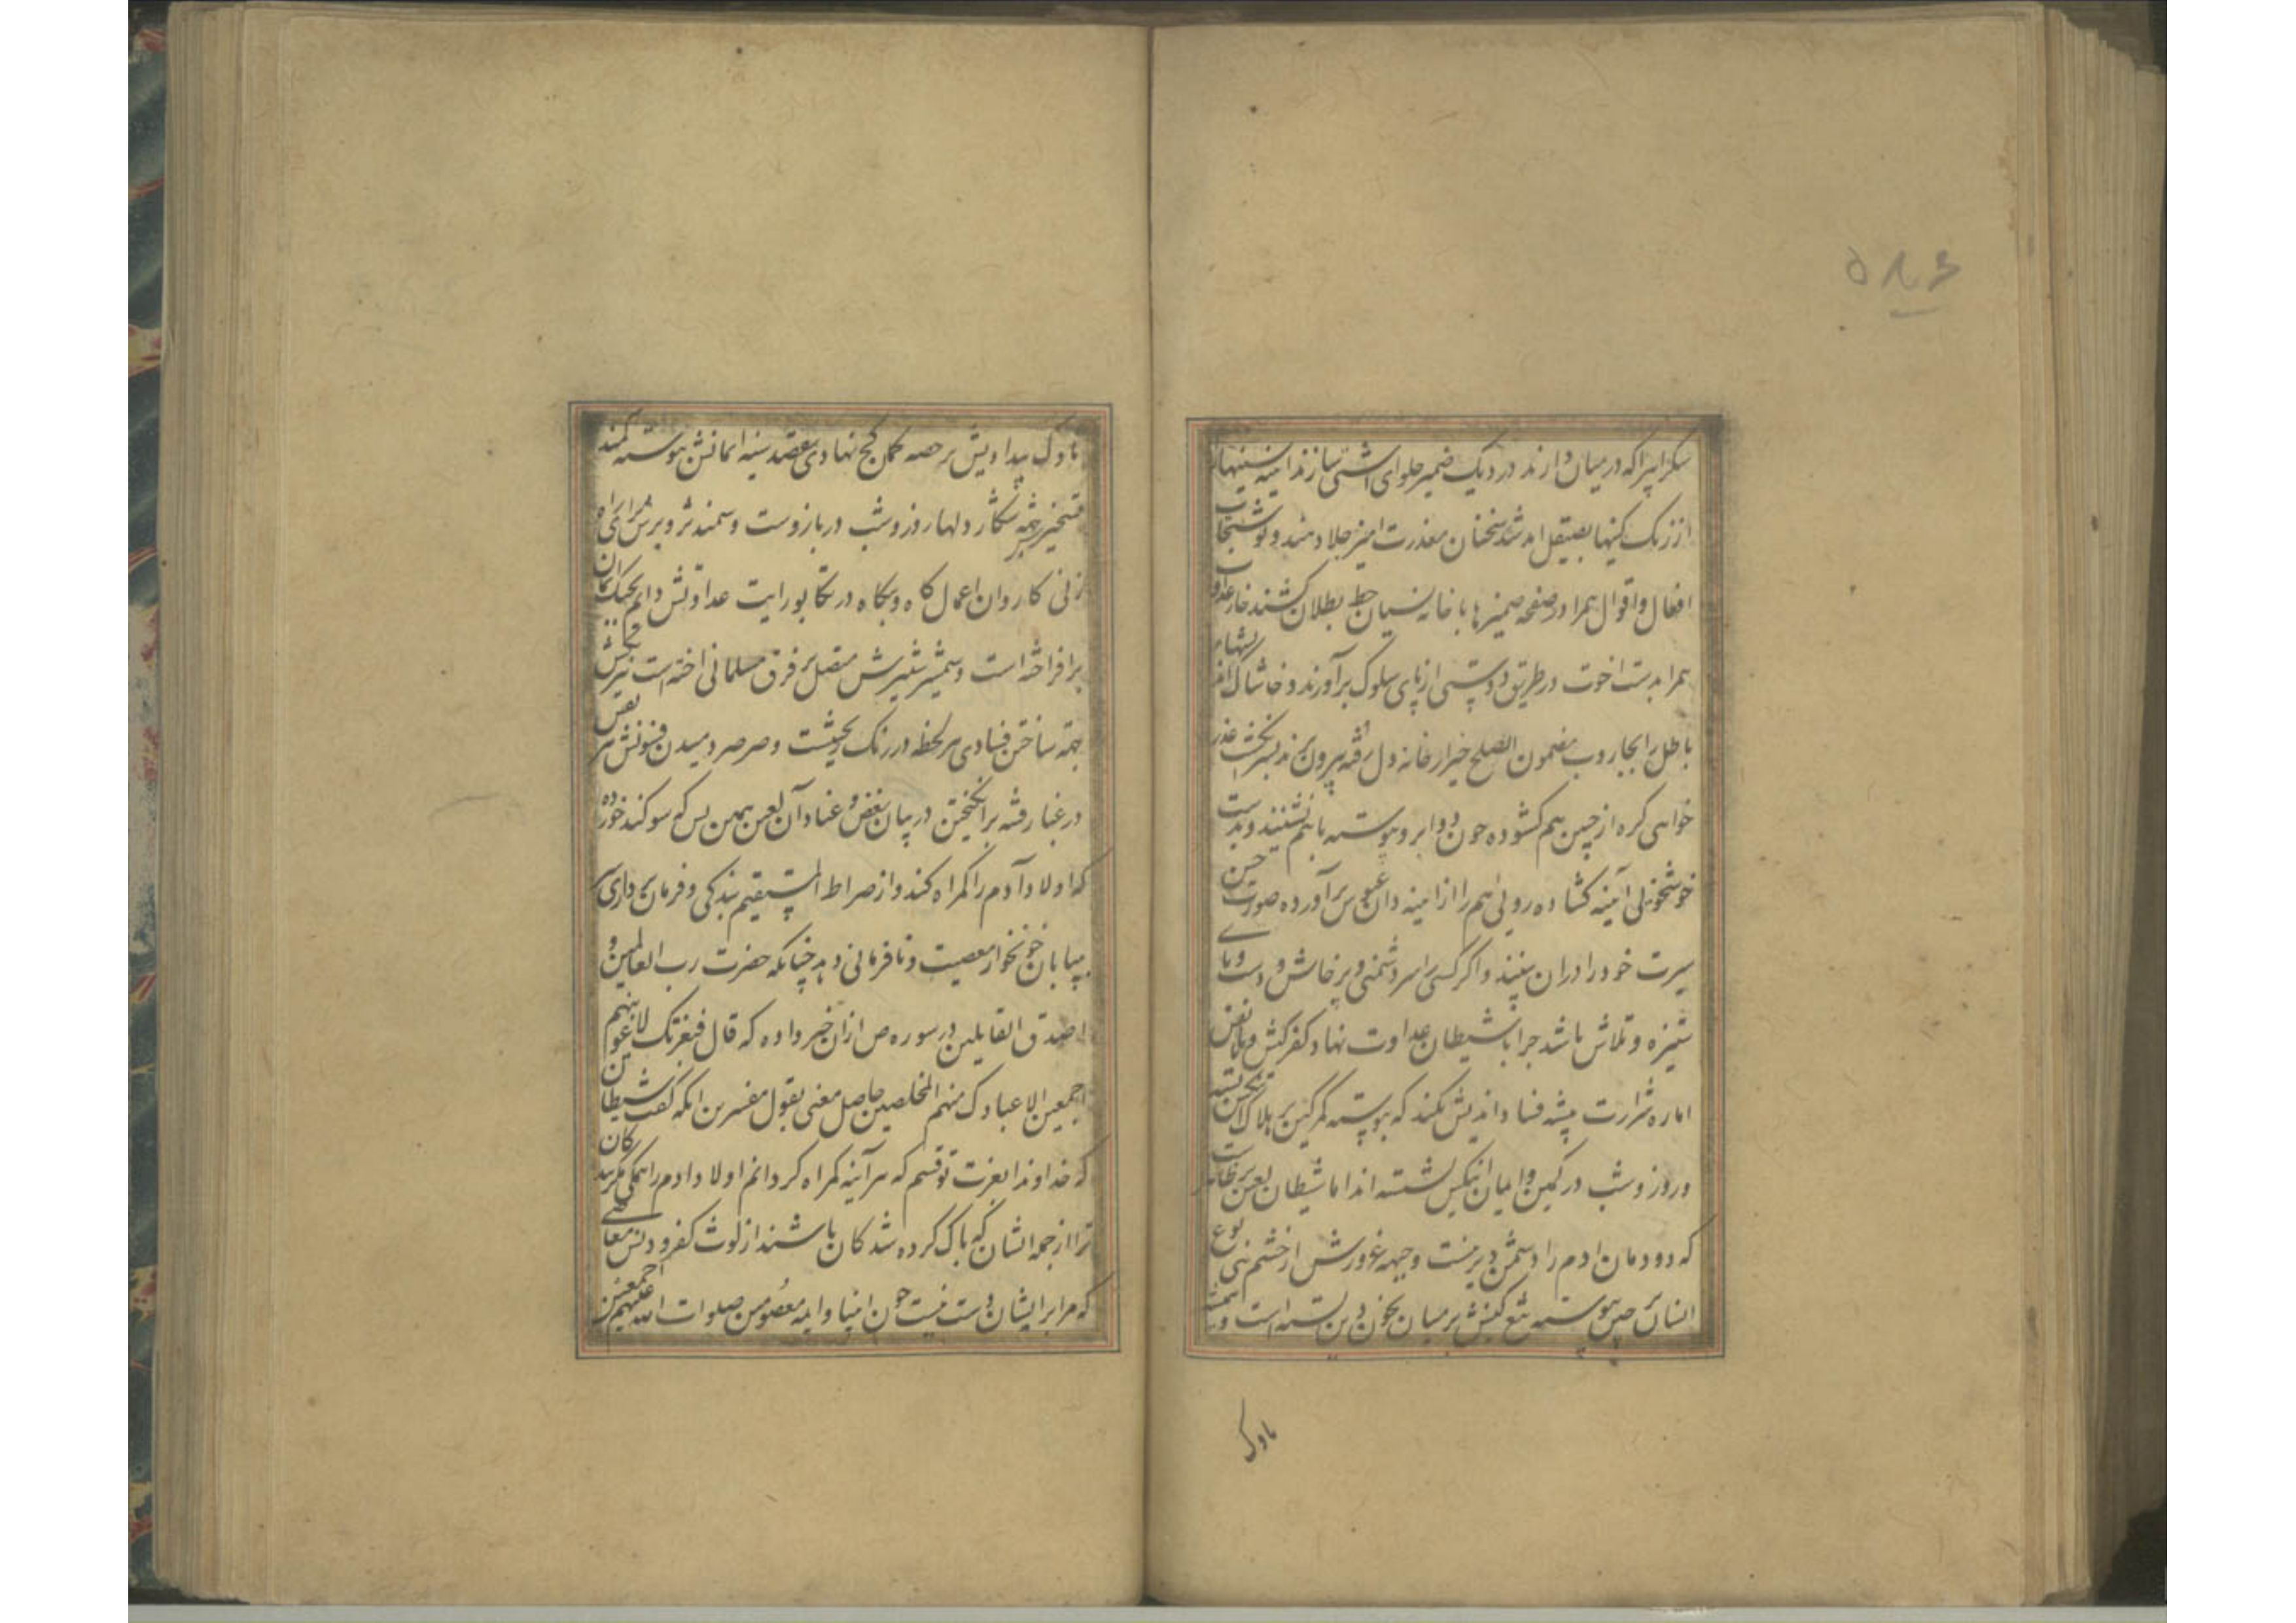 ۵۸۶
شکرابی را که در میان دارند در دیک ضمیر حلوای آشتی سازند آینه سینها
از زنک کینها بصیقل سخنان معذرت امیز جلا دهند و نوشتجات
افعال و اقوال همرا در صفحه ضمیرها با خامه نسیان خط بطلان کشند خار عداوت
همرا بدست اخوت در طریق دوستی از پای سلوک برآورند و خاشاک
باطل را بجاروب مضمون الصلح خیر از خانه دل رفته بیرون برند بسر عذر
خواهی کره از جبین هم کشوده چون دو ابرو پیوسته با هم نشینند و بدست
آینه کشاده روئی هم را از آینه دان برآورده صورت حسن
سیرت خود را در ان بینند و اکر کسی را سر دشمنی و پرخاش و دست و پای
ستیزه و تلاش باشد چرا با شیطان عداوت نهاد کفر کیش و با نفس
اماره شرارت پیشه فساد اندیش نکند که پیوسته کمر کین بر هلاک بسته
و روز و شب در کمین نشسته اند اما شیطان لعین
که دودمان ادم را دشمن دیرینست و چهره غرورش از خشم بنی نوع
انسان پیوسته تیغ کینش بر میان بخون بسته است
ناوک
ناوک بیدادیش بر چله کمان کج نهادی بقصد سینه ایمانش پیوسته کمند
شکار دلها روز و شب در بازوست و سمند
زنی کاروان اعمال کاه و بیکاه در تکاپو رایت عداوتش دایم بجنک
برافراخته است و شمشیر متصل بر فرق مسلمانی اخته است
ساختن فسادی هر لحظه در رنک و صرصر دمیدن فسونش
در غبار فتنه برانکیختن در بیان بغض و عناد آن لعین همین بس که سوکند خورده
که اولاد آدم را کمراه کند و از صراط المستقیم بندکی و فرمان برداری سر
بیابان خونخوار معصیت و نافرمانی دهد چنانکه حضرت رب العالمین و
اصدق القایلین در سوره ص از ان خبر داده که قال فبعزتک لاغوینهم
اجمعین الا عبادک منهم المخلصین حاصل معنی بقول مفسرین انکه کفت شیطان
که خداوندا بعزت تو قسم که هر آینه کمراه کردانم اولاد ادم را همکی مکر بندکان
ترا از جمله ایشان که پاک کرده شدکان باشند از لوث کفر و معاصی
که مرا بر ایشان دست نیست چون انبیا و ایمه معصومین صلوات الله علیهم اجمعین